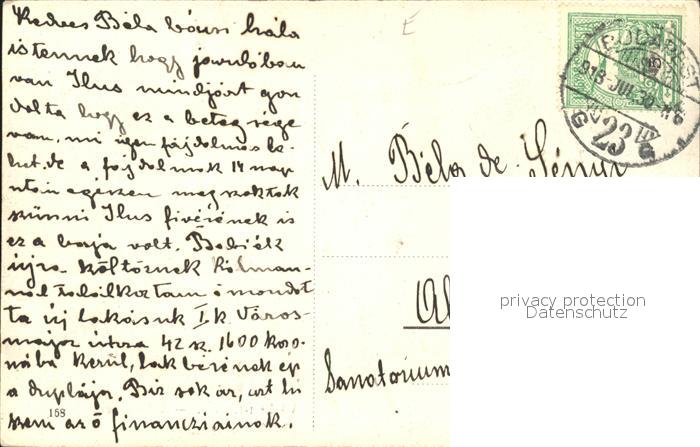 Kedves Béla bácsi hála
istennek hogy javulóban
van Ilus mindjárt gon
dolta hogy ez a betegsége
van, mi igen fájdalmas le-
het de a fájdalmak 14 nap
után egészen megszoktak
szünni Ilus fivérének is
ez a baja volt. Babiék
újra költöznek Kálmán-
nál találkoztam ő mondot
ta új lakásuk I. k. Város-
major utca 42 sz. 1600 koro-
nába kerül, lakbérének ép
a duplája. Biz sok az, azt hi
szem az ő financziáinok.
168
E
M. Béla de
Sanatorium
BUDAPEST
913 JUL 30
23
privacy protection
Datenschutz